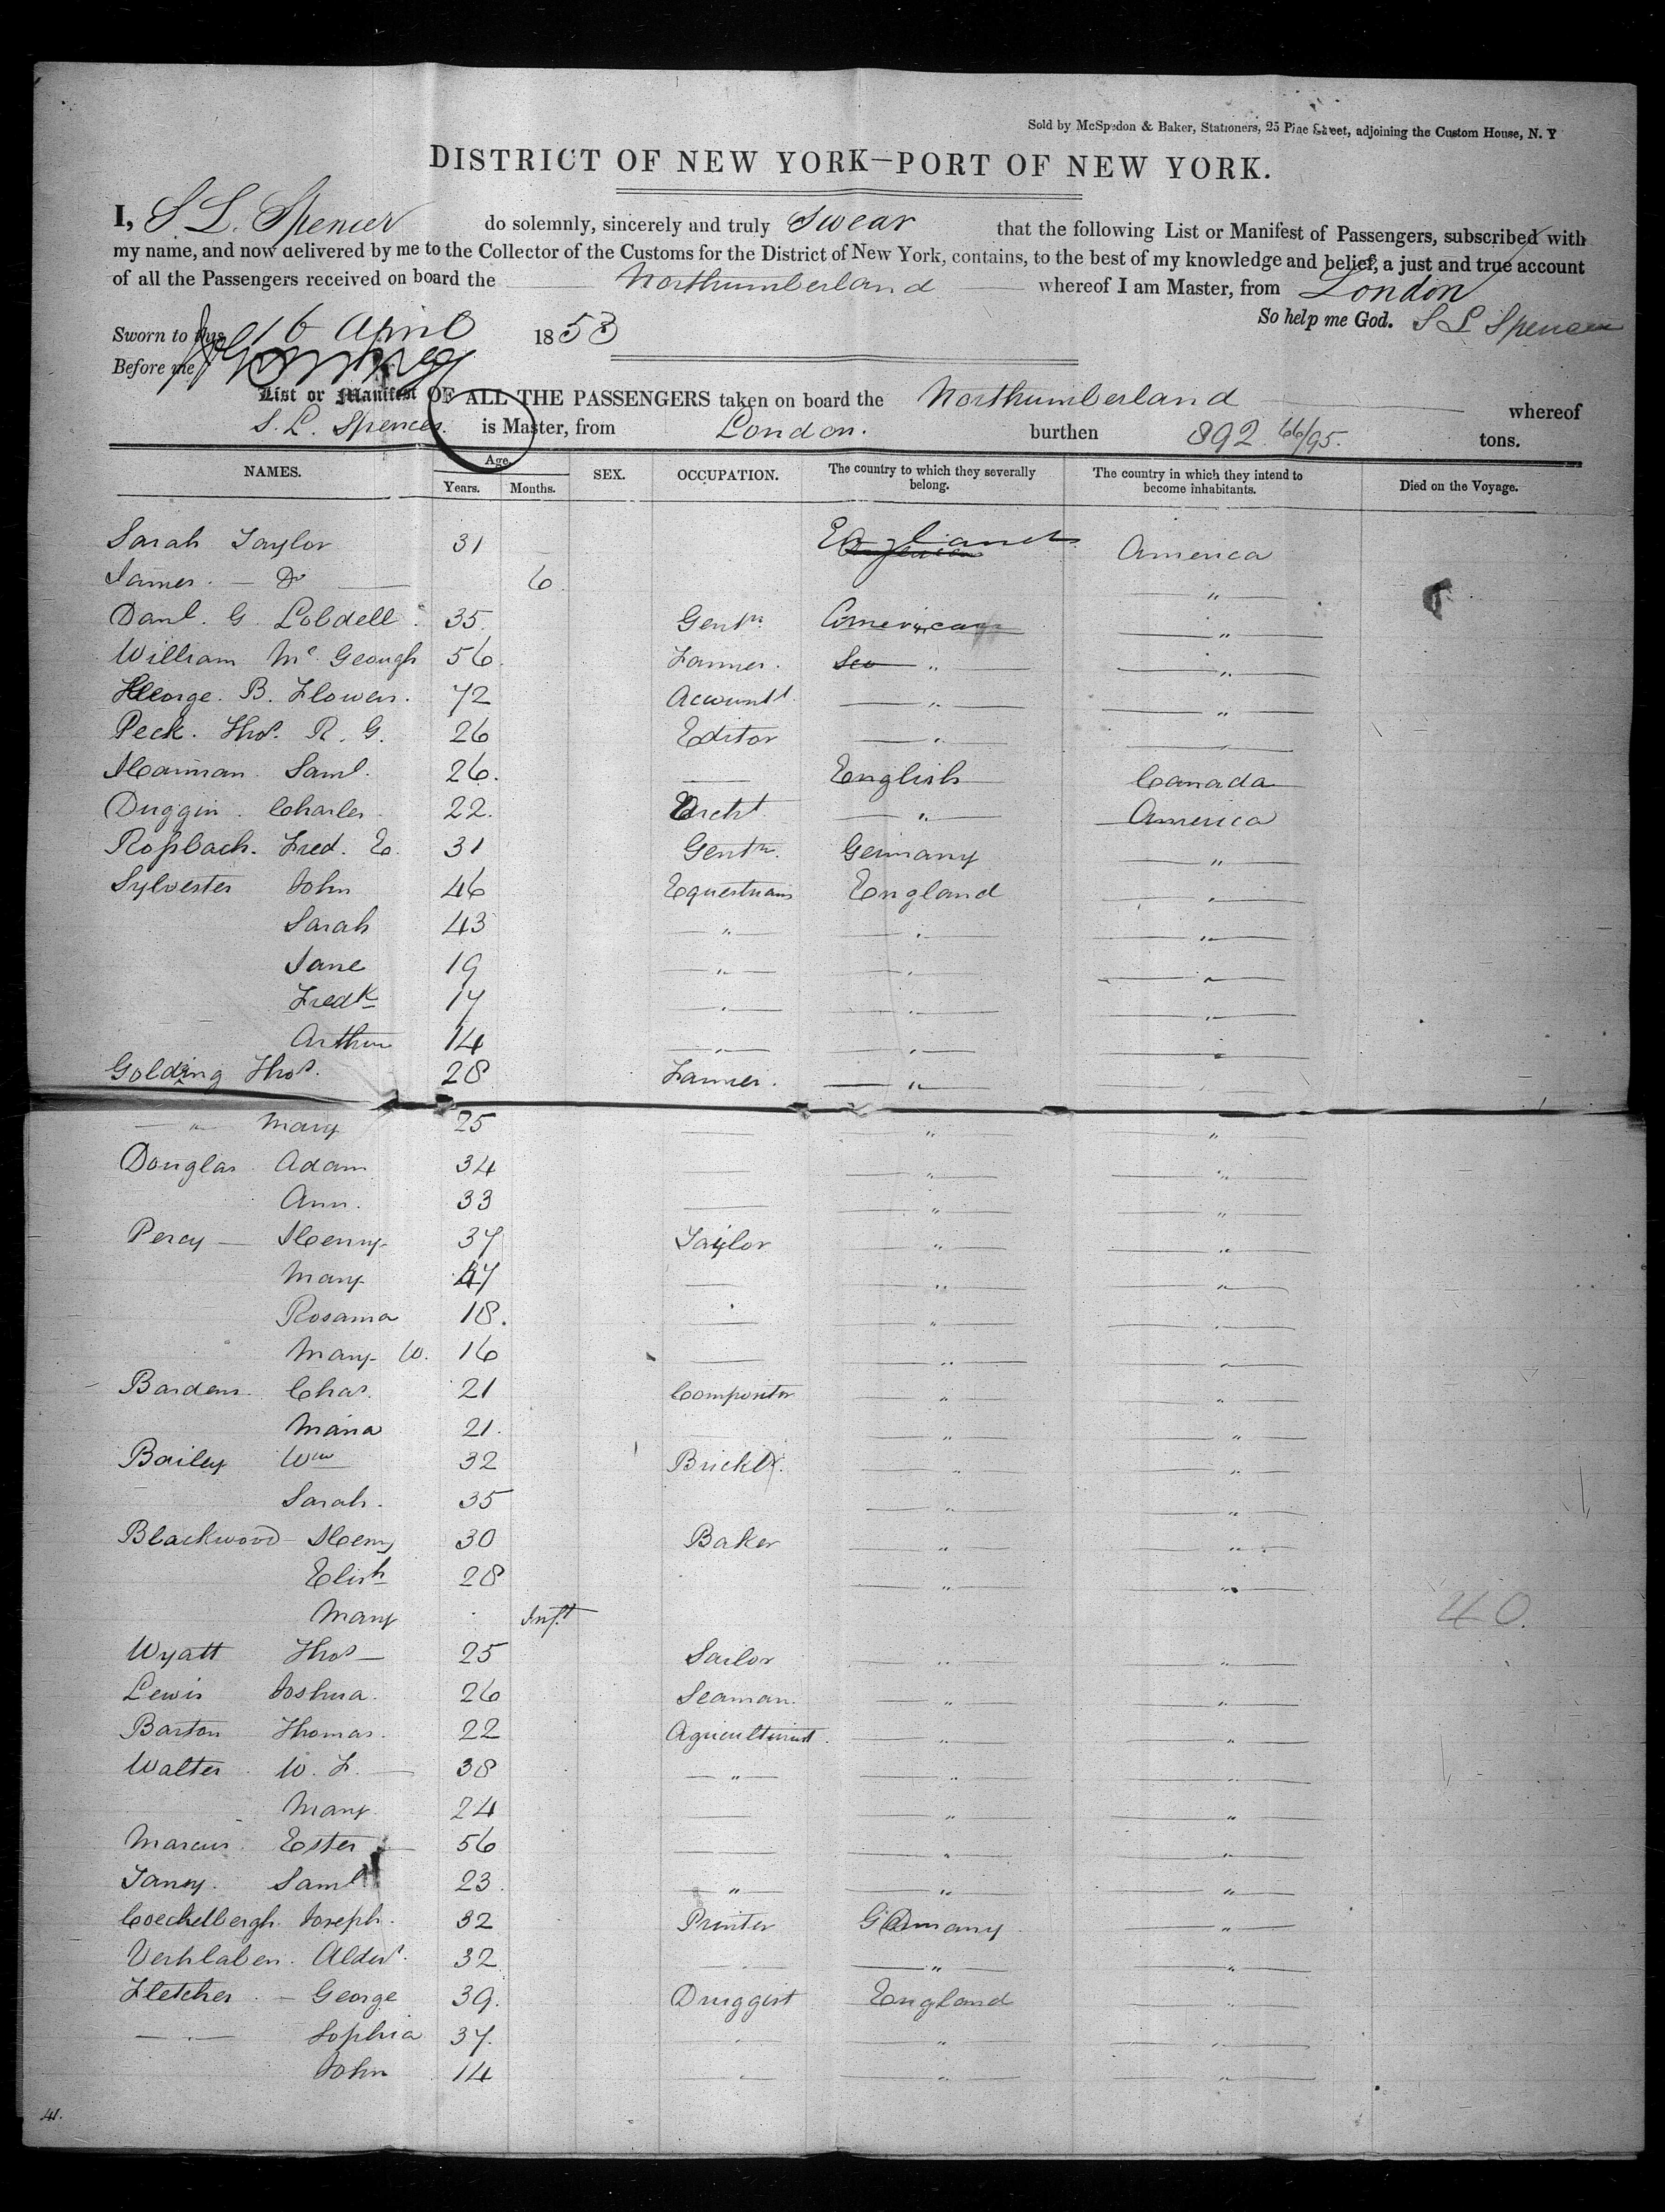 Sold by McSpedon & Baker, Stationers, 25 Pine Street, adjoining the Custom House, N. Y
DISTRICT OF NEW YORK—PORT OF NEW YORK.
I, S. L. Spencer do solemnly, sincerely and truly Swear that the following List or Manifest of Passengers, subscribed with
my name, and now delivered by me to the Collector of the Customs for the District of New York, contains, to the best of my knowledge and belief, a just and true account
of all the Passengers received on board the Northumberland whereof I am Master, from London
So help me God. S L Spencer
Sworn to this 16 April 1853
Before me
List or Manifest OF ALL THE PASSENGERS taken on board the Northumberland whereof
S. L. Spencer. is Master, from London. burthen 892 66/95. tons.
NAMES. Age. Years. Months. SEX. OCCUPATION. The country to which they severally belong. The country in which they intend to become inhabitants. Died on the Voyage.
Sarah Taylor 31 England America
James - Do 6 "
Danl. G Lobdell 35. Gentn. American "
William Mc Geough 56. Farmer. " "
George. B. Flower. 72 Accountt. " "
Peck. Thos. R. G. 26 Editor " "
Harman Saml. 26. English Canada
Duggin. Charles 22. Archt " America
Roſsbach. Fred. E. 31 Gentn. Germany "
Sylvester John 46 Equestrians England "
Sarah 43 " " "
Jane 19 " " "
Fredk 17 " " "
Arthur 14 " " "
Golding Thos. 28 Farmer. "
" Mary 25 " "
Douglas Adam 34 " "
Ann. 33 " "
Percy — Henry 37 Taylor " "
Mary 47 " "
Rosanna 18. " "
Mary W. 16 " "
Bardens. Chas. 21 Compositor " "
Maria 21. " "
Bailey Wm 32 Bricklr. " "
Sarah. 35 " "
Blackwood Henry 30 Baker " "
Elizh 28 " "
Mary Inft
40.
Wyatt Thos — 25 Sailor " "
Lewis Joshua. 26 Seaman. " "
Barton Thomas. 22 Agriculturist. " "
Walter W. F. — 38 " " "
Mary 24 " "
Marcus. Ester 56 " "
Saml 23. " " "
Coechelbergh. Joseph. 32 Printer Germany "
Verhlaben. 32 " " "
Fletcher. — George 39. Druggist England "
" Sophia 37. " " "
John 14 " " "
41.